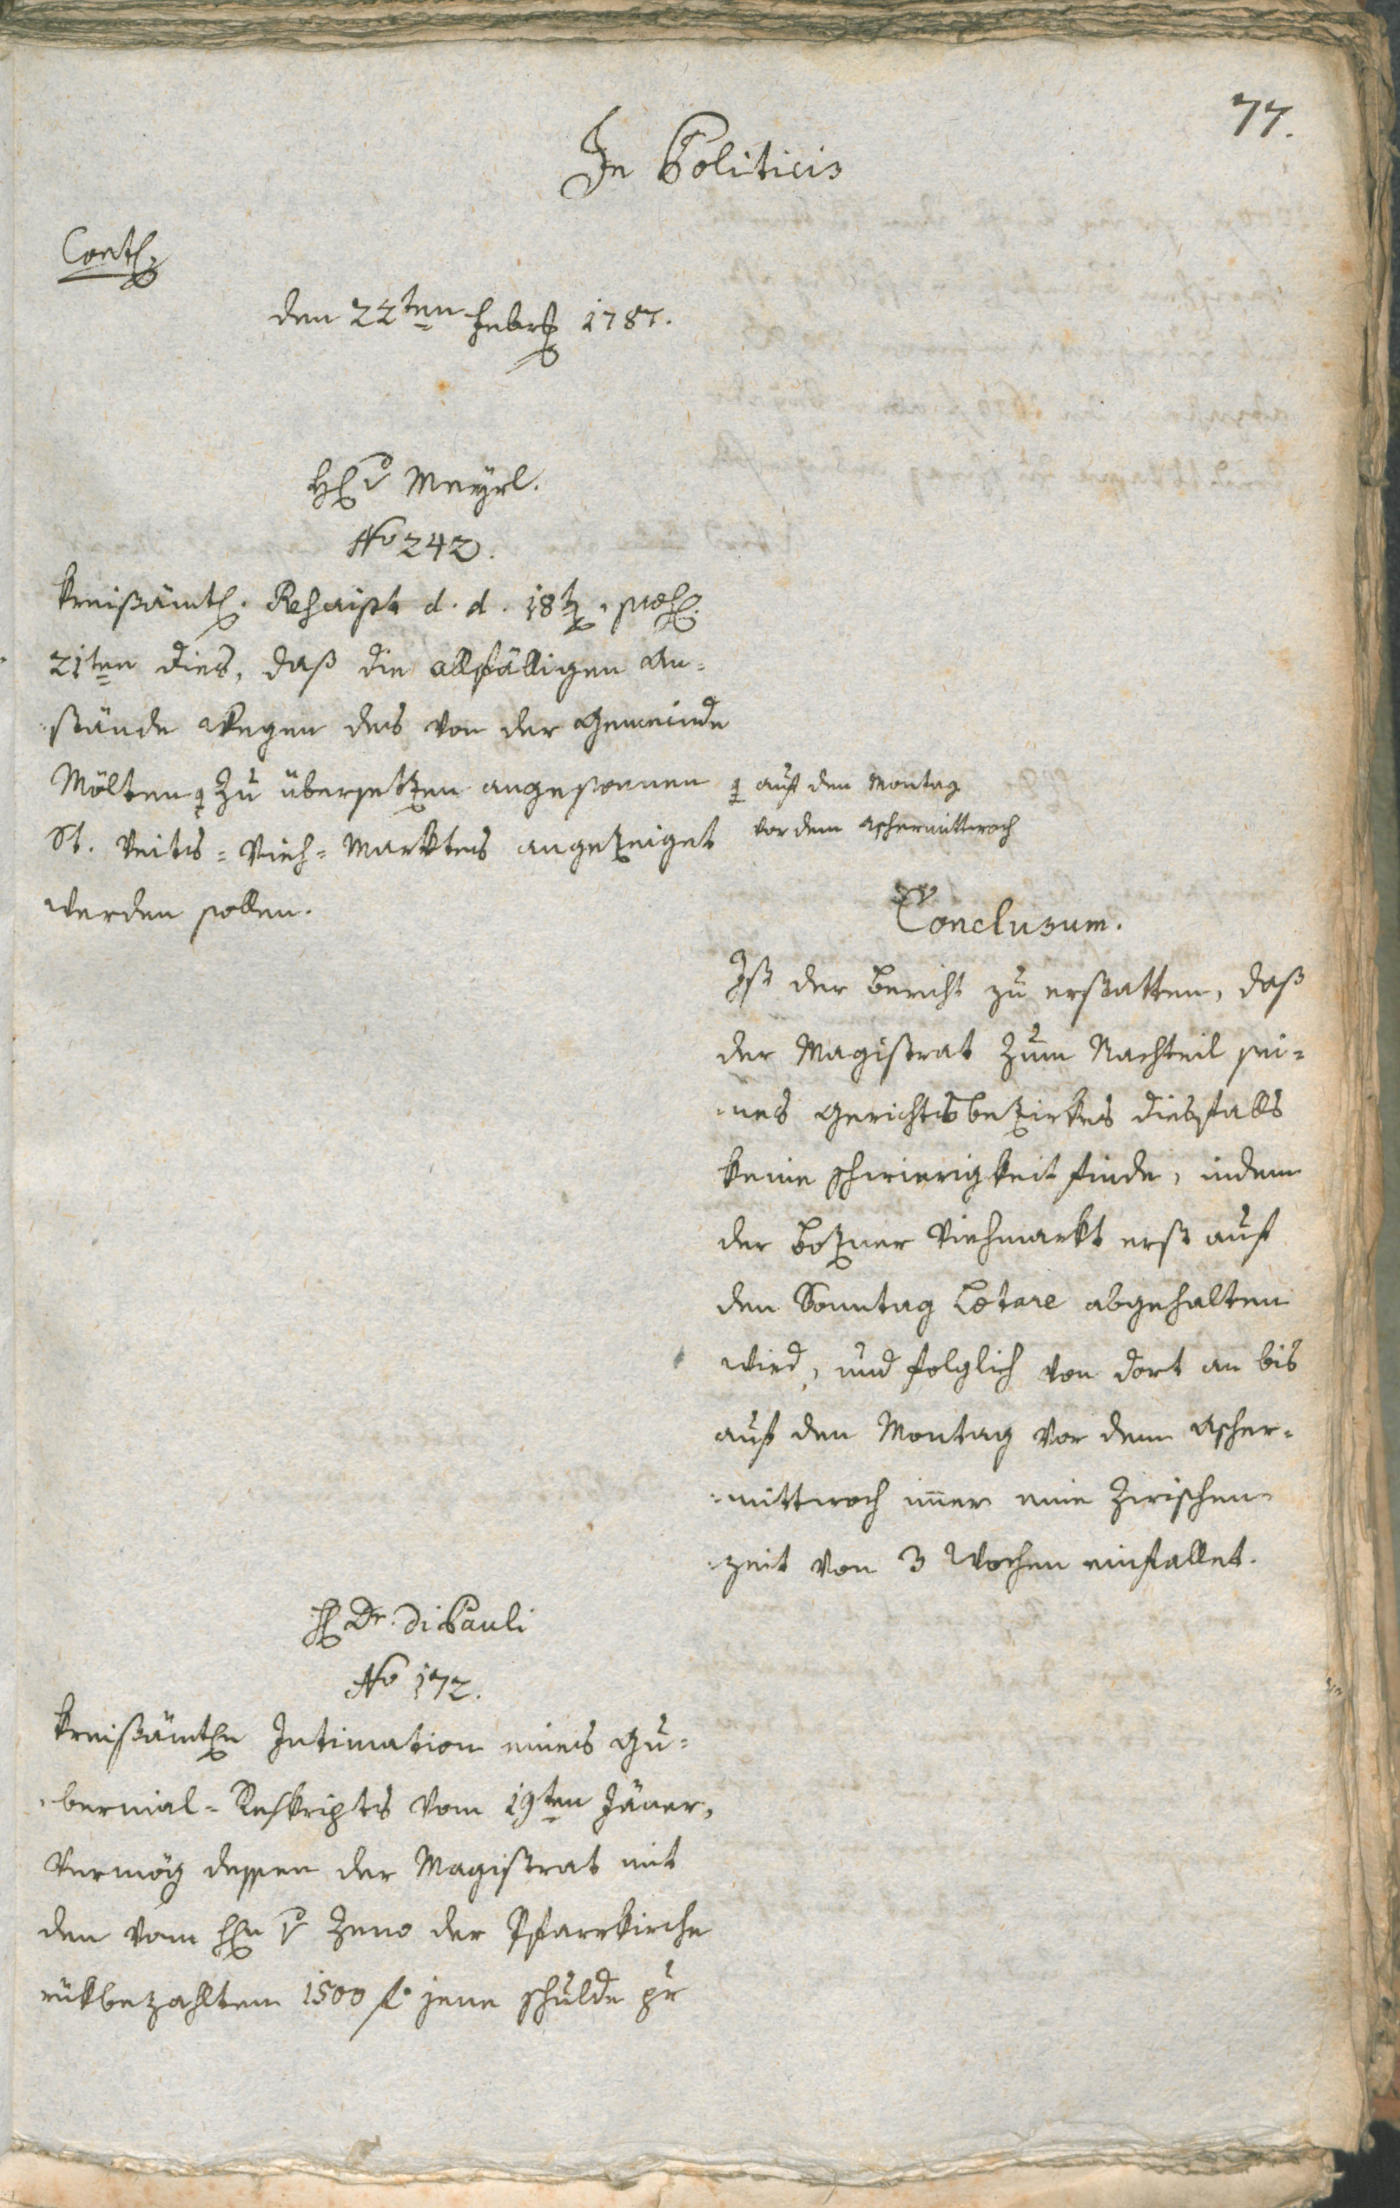 77.
In Politicis
Cont:
den 22ten Febr: 1787.
H: v Meyrl.
No 242.
Kreißämtl: Rescript d. d. 18t: præs:
21ten dies, daß die allfälligen An=
stände wegen des von der Gemeinde
Mölten zu übersetzen angesonnen
St. Veits=Vieh=Marktes angezeiget
werden sollen.
auf den Montag
vor dem Aschermittwoch
Conclusum.
Ist der Bericht zu erstatten, daß
der Magistrat zum Nachteil sei=
nes Gerichtsbezirkes diesfalls
keine Schwierigkeit finde, indem
der Bozner Viehmarkt erst auf
den Sonntag Lætare abgehalten
wird, und folglich von dort an bis
auf den Montag vor dem Ascher=
mittwoch immer eine Zwischen=
zeit von 3 Wochen einfallet.
H: Dr. di Pauli
No 172.
Kreißämtl: Intimation eines Gu=
bernial=Reskripts vom 19ten Jäner,
vermög dessen der Magistrat mit
den vom H:n v Zeno der Pfarrkirche
rükbezahlten 1500 f. jene Schulde pr